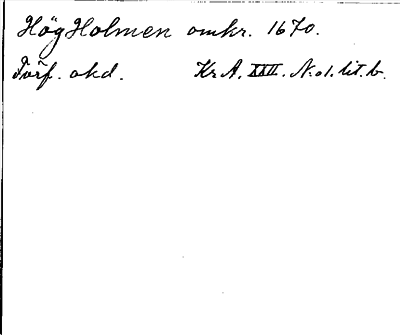 Hög Holmen omkr. 1670.
Förf. okd. Kr. A. XXII. N:o 1. lit. b.